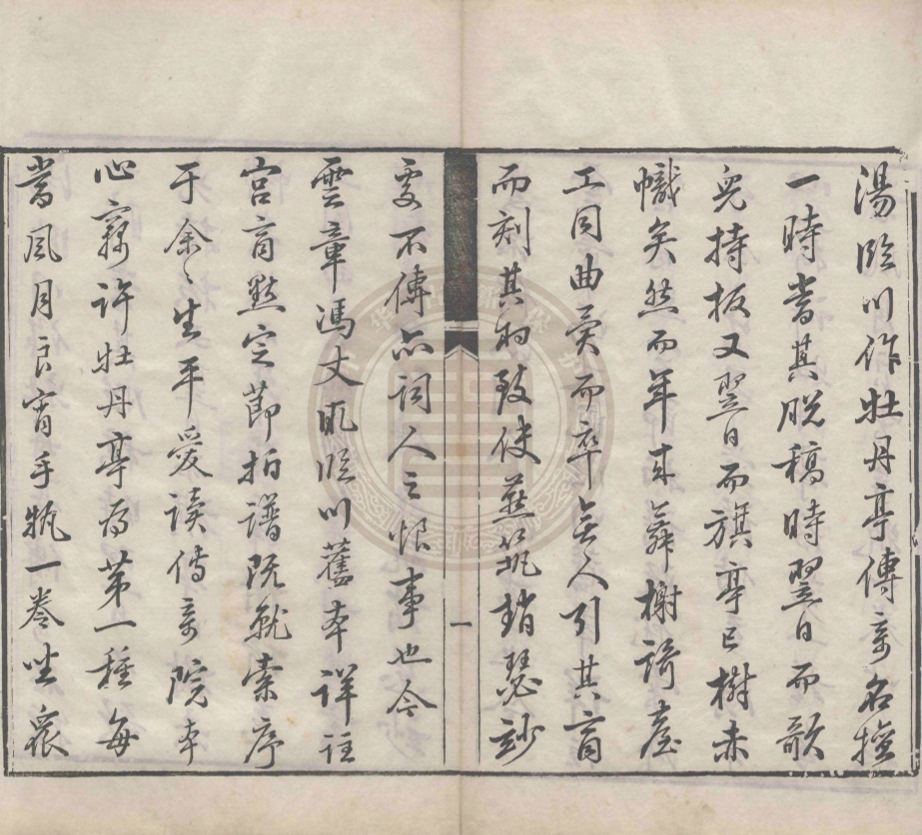 湯臨川作牡丹亭傳奇名擅
一時當其脫稿時翌日而歌
兒持板又翌日而旗亭已樹赤
幟矣然而年來舞榭歌臺
工同曲異而卒無人引其宮
而刻其羽致使燕筑趙瑟玅
處不傳亦詞人之恨事也今
雲章馮丈取臨川舊本詳註
宮商點定節拍譜既就索序
于余〻生平愛讀傳奇院本
心竊許牡丹亭為第一種每
當風月良宵手執一卷坐衆
一